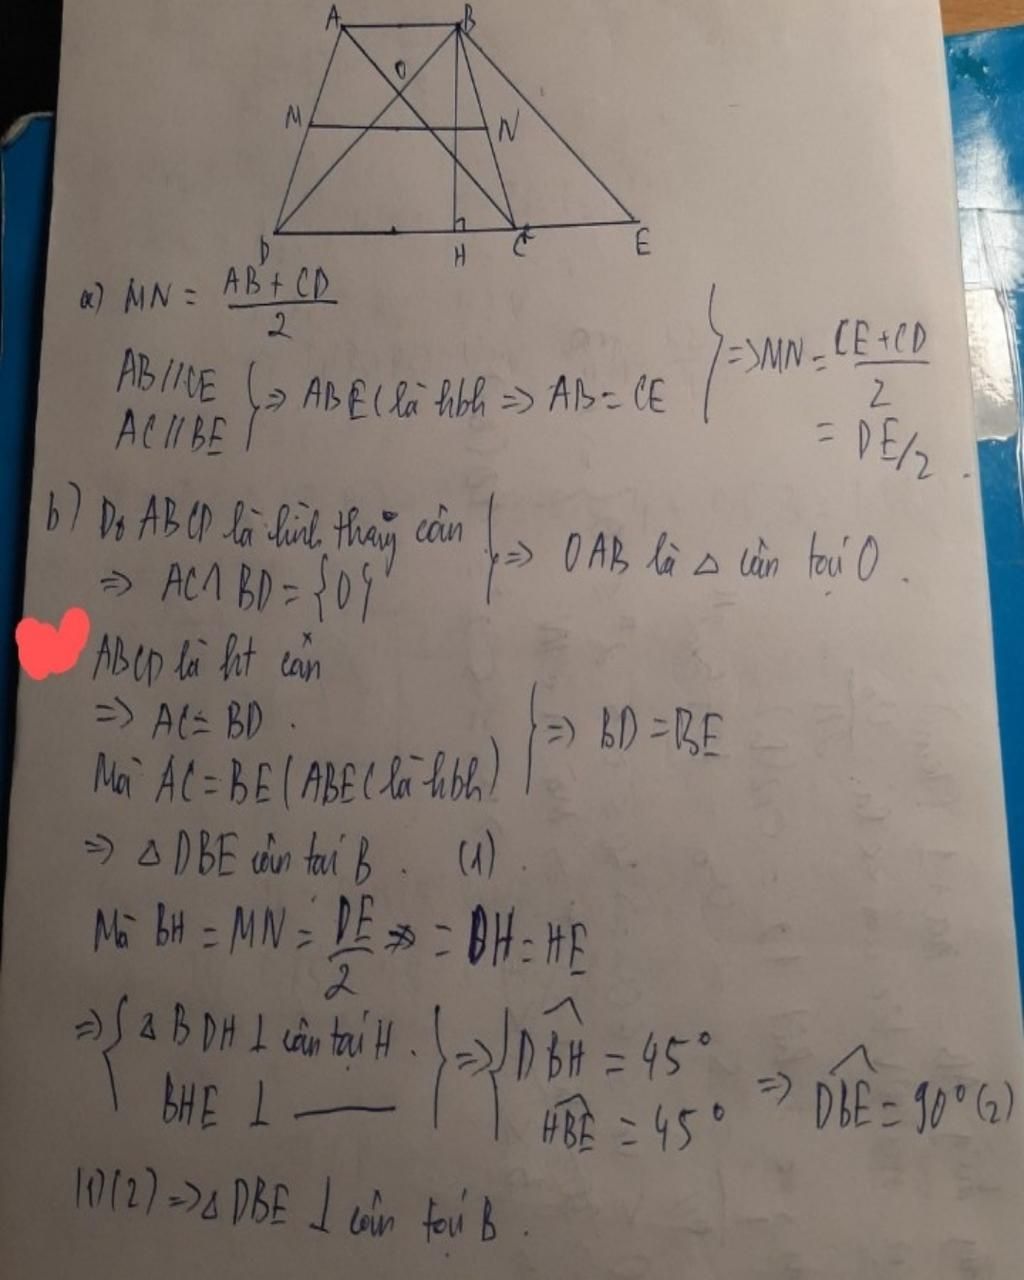 A B
O
M N
D H C E
a) MN = AB + CD / 2
AB // CE
AC // BE } => ABEC là hbh => AB = CE } => MN = CE + CD / 2
= DE/2.
b) Do ABCD là hình thang cân
=> AC ∩ BD = {O} } => OAB là Δ cân tại O.
ABCD là ht cân
=> AC = BD.
Mà AC = BE (ABEC là hbh) } => BD = BE
=> Δ DBE cân tại B. (1).
Mà BH = MN = DE / 2 = DH = HE
=> { Δ BDH ⊥ cân tại H. } => { DBH = 45°
BHE ⊥ —— HBE = 45° => DBE = 90° (2)
(1)(2) => Δ DBE ⊥ cân tại B.